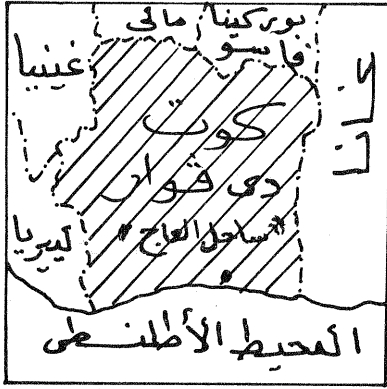 مالى
بوركينا
فاسو
غينيا
غانا
كوت
دى ڤوار
"ساحل العاج"
ليبريا
المحيط الأطلنطى